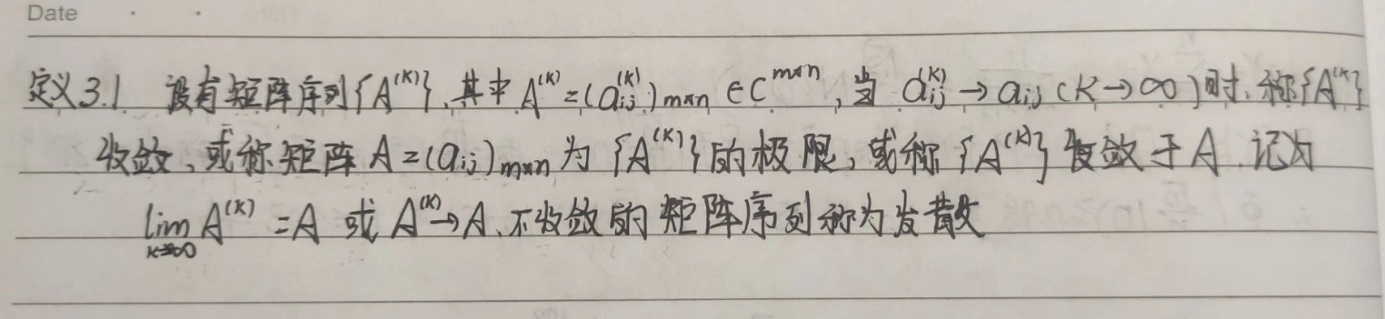 Date
定义3.1 设有矩阵序列{A^(K)},其中 A^(K)=(a_ij^(K))_m×n ∈C^m×n,当 a_ij^(K)→a_ij(K→∞)时,称{A^(K)}
收敛,或称矩阵 A=(a_ij)_m×n为{A^(K)}的极限,或称{A^(K)}收敛于A.记为
lim_K→∞ A^(K)=A 或 A^(K)→A.不收敛的矩阵序列称为发散